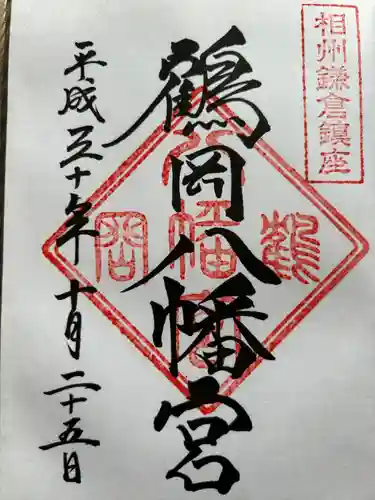 相州鎌倉鎮座
鶴岡八幡宮
平成三十年十月二十五日